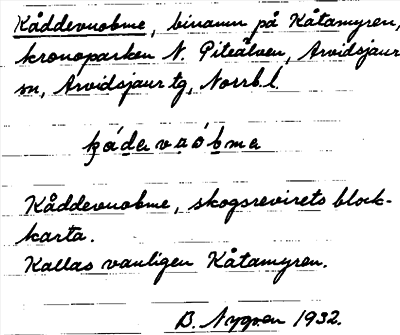 Kåddevuobme, binamn på Kåtamyren,
kronoparken N. Piteälven, Arvidsjaur
sn, Arvidsjaur tg, Norrb. l.
ḱáde̮va̮óbme̮
Kåddevuobme, skogsrevirets block-
karta.
Kallas vanligen Kåtamyren.
B. Nygren 1932.